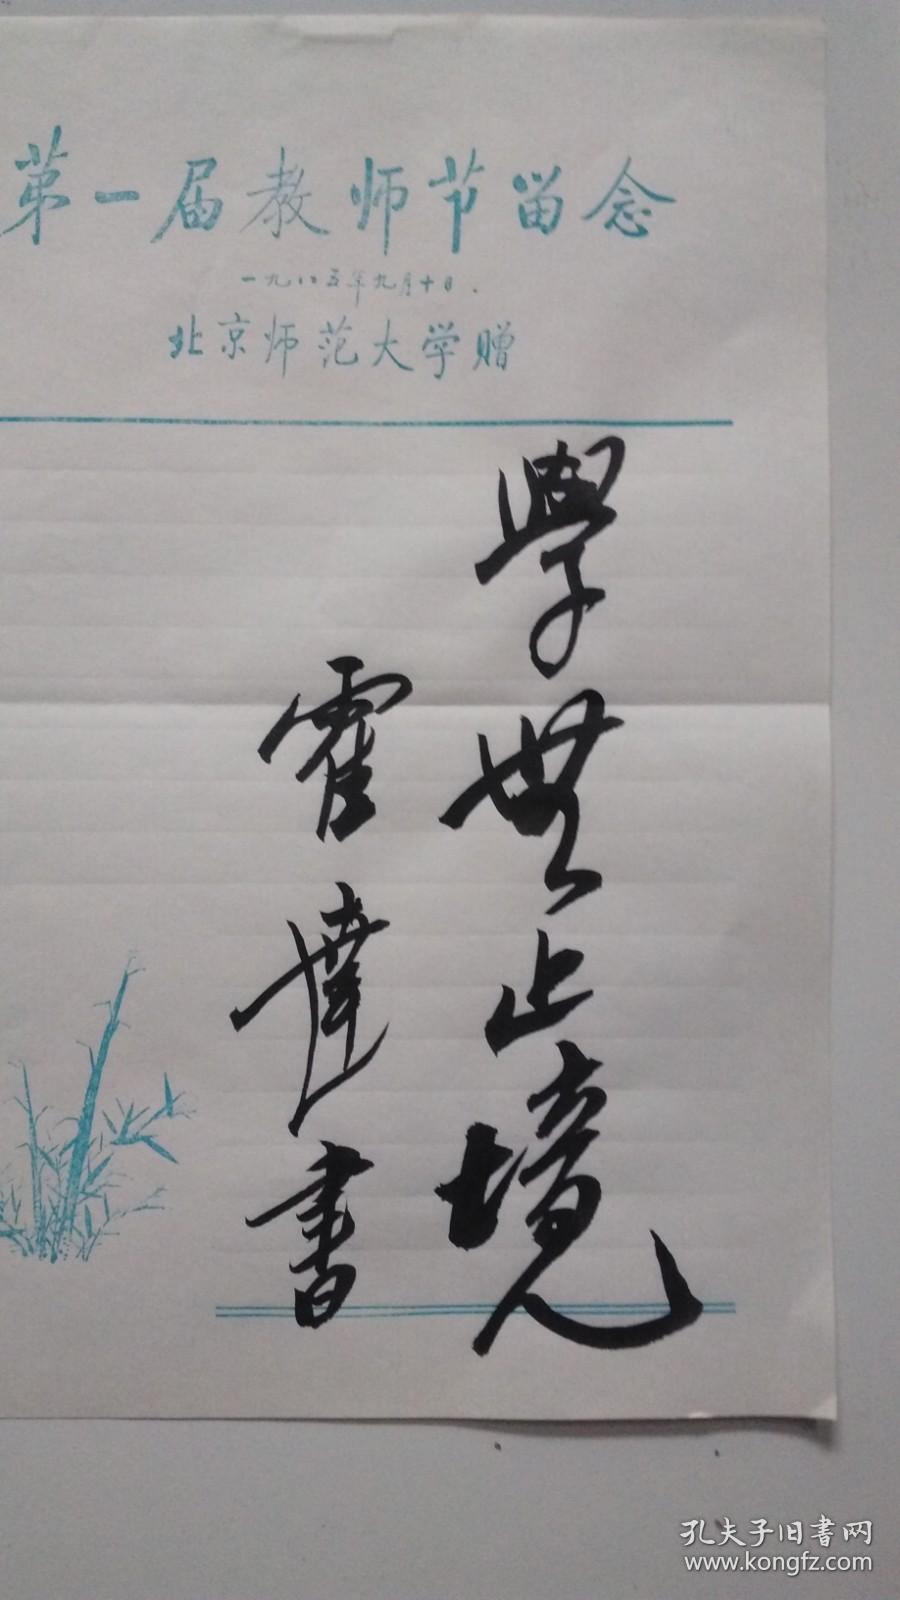 第一届教师节留念
一九八五年九月十日.
北京师范大学赠
學無止境
霍達書
孔夫子旧书网
www.kongfz.com